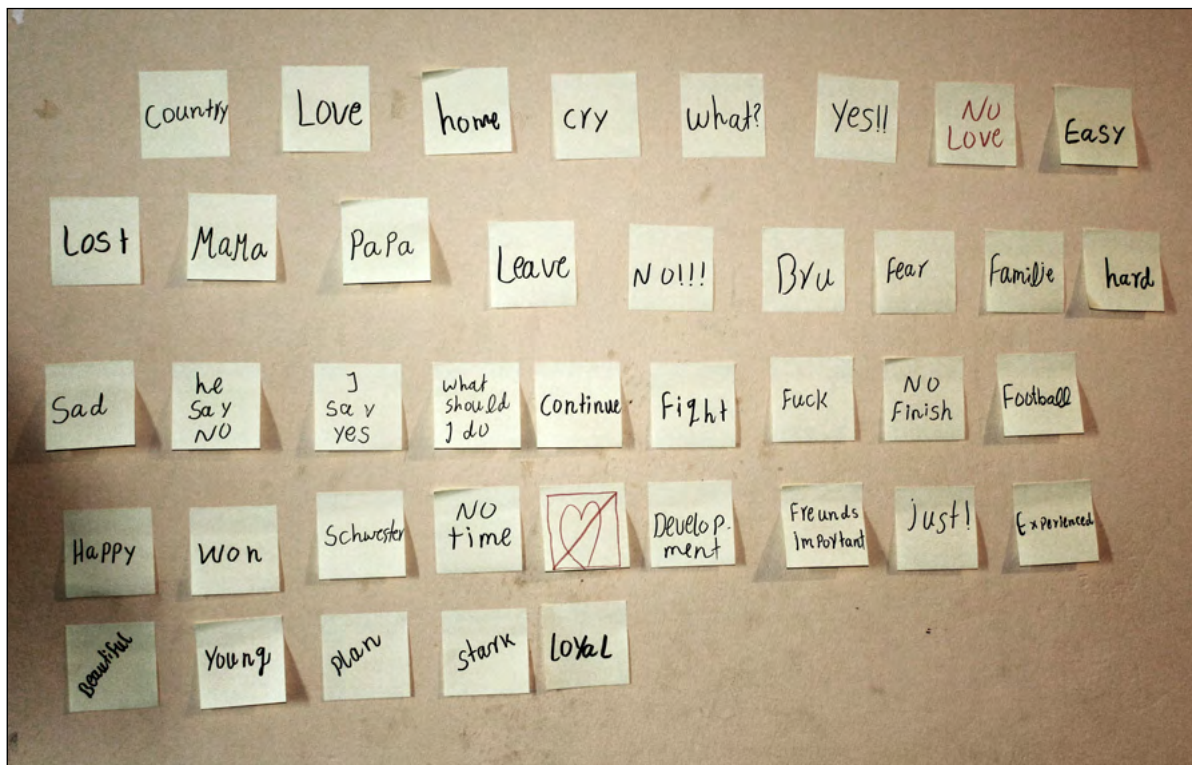 Country
Love
home
cry
what?
Yes!!
NO
LOVE
EASY
Lost
MaMa
PaPa
Leave
NO!!!
Bru
Fear
Familie
hard
Sad
he
Say
NO
I
Say
yes
what
should
I do
Continue
Fight
Fuck
NO
Finish
Football
Happy
won
Schwester
NO
time
Develop-
ment
Freunds
important
just!
Experienced
Beautiful
Young
plan
stark
LOYAL